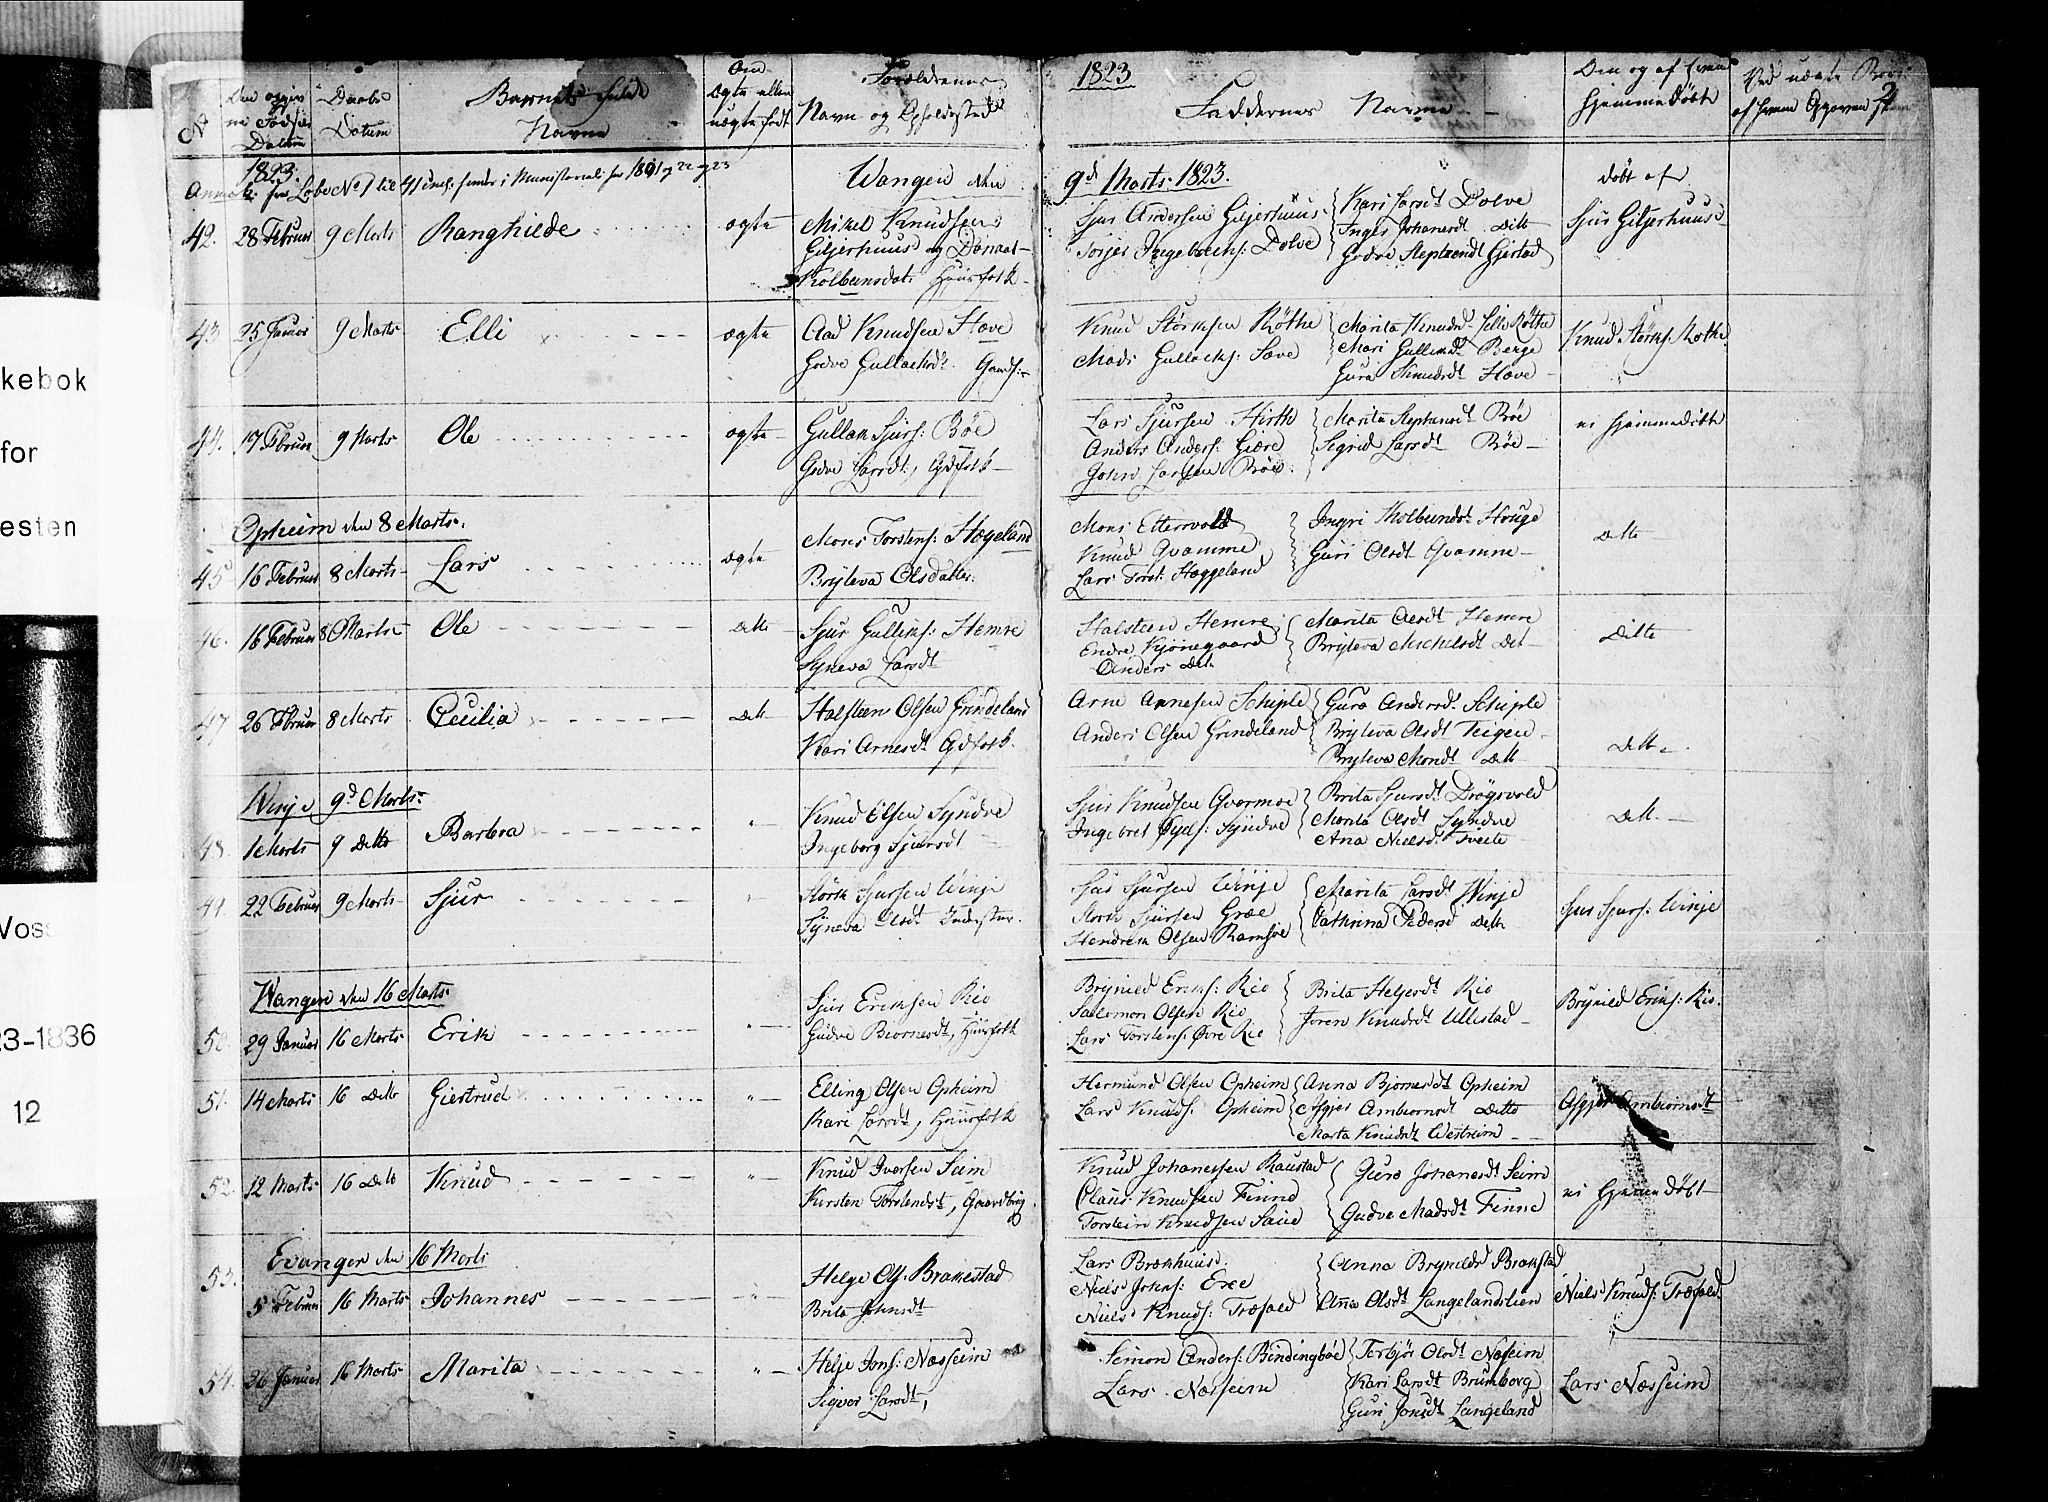 kebok
for
esten
Voss
23-1836
12
1823
2
No
Daabs
Datum
Barnets fulde
Navne
Om
ægte eller
uægte født
Forældrenes
Navn og Opholdssted
Faddernes Navne
hjemmedøbt
1823.
Wangen den 9d Marts 1823.
døbt af
42. 28 Februar 9 Marts Ranghilde ægte
Mikel Knudsen
Giljerhuus og
Huusfolk
Sjur Andersen Giljerhuus
Dolve
Kari Larsdt Dolve
Inger Johanesdt Ditto
Sjur Giljerhuus
43. 25 Januar 9 Marts Elli ægte
Aad Knudsen Hove
Knud Størksen Røthe
Mads Gullachs: Sæve
Marita Knudsdt Røthe
Berge
Gura Knudsdt Hove
Knud Størks: Rothe
44. 17 Februar 9 Marts Ole ægte
Gullak Sjurs: Bøe
Gudve Larsdt, Gdfolk
Lars Sjursen
Anders Anders: Giære
John Larsen Bøe
Bøe
Sigrid Larsdt Bøe
ei hjemmedøbt
Opheim den 8 Marts.
45 16 Februar 8 Marts Lars ægte
Mons Torstens: Hægeland
Bryteva Olsdatter
Mons
Knud Qvamme
Lars Torst: Hæggeland
Guri Olsdt Qvamme
Dtto
46. 16 Februar 8 Marts Ole Dtto
Sjur Gulleiks: Hemre
Syneva Larsdt
Halsteen Hemre
Endre Kjønegaard
Anders Dtto
Marita Olsdt Hemre
Bryteva Michelsdt Dtto
Ditto
47 26 Februar 8 Marts Cecilia Dtto
Halsteen Olsen Grindeland
Kari Arnesdt Gdfolk
Arne Arnesen Skiple
Anders Olsen Grindeland
Gura Andersdt Skiple
Bryteva Olsdt Teigen
Bryteva Monsdt Dtto
Dtto
Winje 9d Marts
48. 1 Marts 9 Ditto Barbra
Knud Olsen Syndve
Ingeborg Sjursdt
Sjur Knudsen Qvarme
Ingebret Syndve
Brita Sjursdt Drøgsvold
Marita Olsdt Syndve
Ana Nielsdt Tveite
Dtto
49. 22 Februar 9 Marts Sjur
Størk Sjursen Winje
Syneva Olsdt Inderster
Sjur Sjursen Winje
Størk Sjursen Græe
Hendrik Olsen Ramsøe
Marita Larsdt Winje
Cathrina Pedersd Dtto
Sjur Sjurs: Winje
Wangen den 16 Marts
50. 29 Januar 16 Marts Erik
Sjur Eriksen Rio
Gudve Biornesdt, Huusfolk
Brynild Eriks: Rio
Salomon Olsen Rio
Lars Torstens: Øvre Rio
Brita Helgesdt Rio
Joren Knudsdt Ullestad
Brynild Eriks: Rio.
51. 14 Marts 16 Ditto Giertrud
Elling Olsen Opheim
Kari Larsdt, Huusfolk
Hermund Olsen Opheim
Lars Knuds: Opheim
Anna Bjornesdt Opheim
Asgjer Ambiornsdt Ditto
Marta Knudsdt Westreim
Asgjer Ambiornsdt
52. 12 Marts 16 Ditto Knud
Knud Iversen Seim
Kirsten Torstensdt, Gaardbrug
Knud Johanessen Raustad
Claus Knudsen Finne
Torstein Knudsen Saue
Guro Johanesdt Seim
Gudve Madsdt Finne
ei hjemmedøbt
Evanger den 16 Marts
53. 5 Februar 16 Marts Johannes
Helge Ols: Brakestad
Brita Johnsdt
Lars Brækhuus
Niels Johns: Exe
Niels Knuds: Træfald
Anna Brynildsdt Brakstad
Anna Olsdt Langelandslien
Niels Knuds: Træfald
54. 26 Januar 16 Marts Marita
Helje Jons: Næsheim
Sigver Larsdt,
Simon Anders: Bindingbøe
Lars Næsheim
Torbjør Olsdt Næsheim
Kari Larsdt Brunborg
Guri Jonsdt Langeland
Lars Næsheim